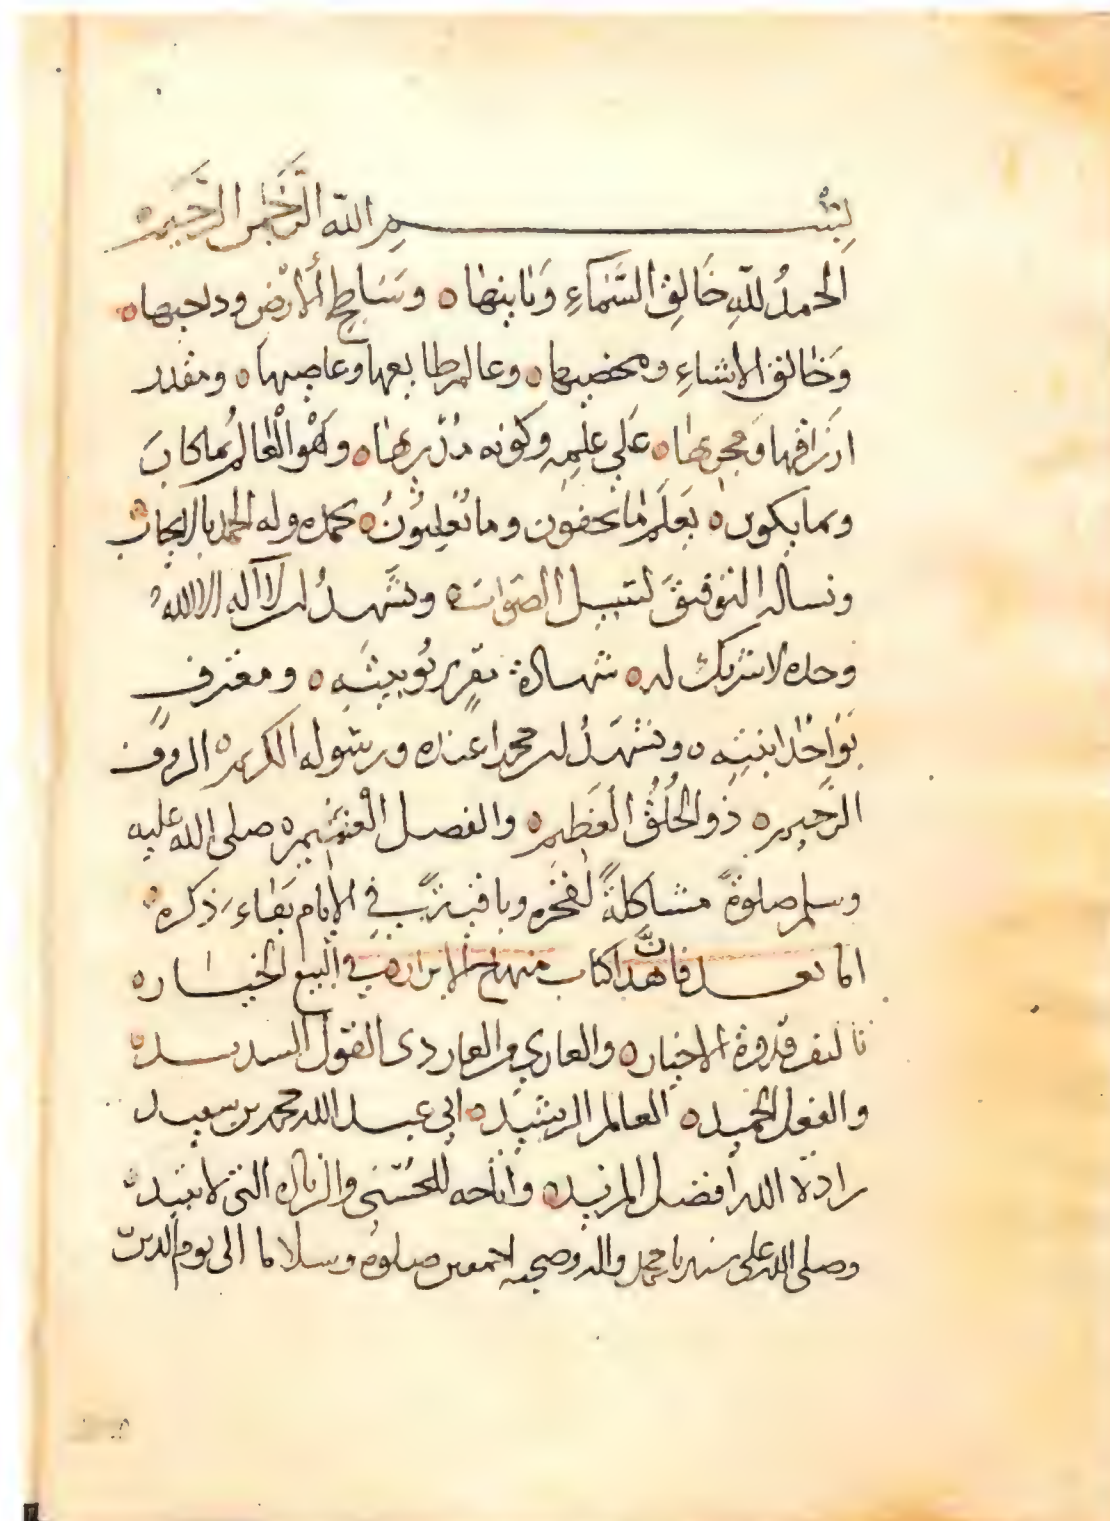 بسم الله الرحمن الرحيم
الحمدُ للهِ خَالِقِ السَّمَآءِ وَبَانِيهَا ٥ وسَاطِحِ الأرْضِ وداحيها ٥
وَخَالق الاشياءِ ومحصيها ٥ وعالم طايعها وعاصيها ٥ ومقدر
ارزاقها ومجريها ٥ عَلَى علمِهِ وكونه مدبرها ٥ وهْو الْعَالمُ بما كانَ
وبما يكون ٥ يَعلَم مَا تخفون وما تُعْلِنُونَ ٥ نحمده وله الحمد بالايجاب ٥
ونساله التوفيقَ لسبيل الصَّوَاب ٥ ونشهدُ ان لا اله الا الله
وحده لا شريك له ٥ شهادة مقرٍ بربُوبيتَهِ ٥ ومعترفٍ
بوَاحْدانيتِهِ ٥ ونشهَدُ ان محمدا عبده ورسوله الكريم ٥ الروف
الرحيم ٥ ذو الخُلُق العَظِيم ٥ والفضل العميم ٥ صلى الله عليه
وسلم صلوةً مشاكلةً لفخره وباقيةً في الايام بقاءَ ذكره ٥
اما بعد فانَّ هذا كتاب منهاج الابرار ٥ في البيع الخيار ٥
تاليف قدوة الاخيار ٥ والعاري من العار ذي القول السديد ٥
والفعل الحميد ٥ العالم الرشيد ٥ ابي عبد الله محمد بن سعيد
زادهُ الله أفضل المزيد ٥ واتاحه للحُسْنى والزيادة التي لا تبيد ٥
وصلى الله على سيدنا محمد واله وصحبه اجمعين صلوةً وسلاما الى يوم الدين